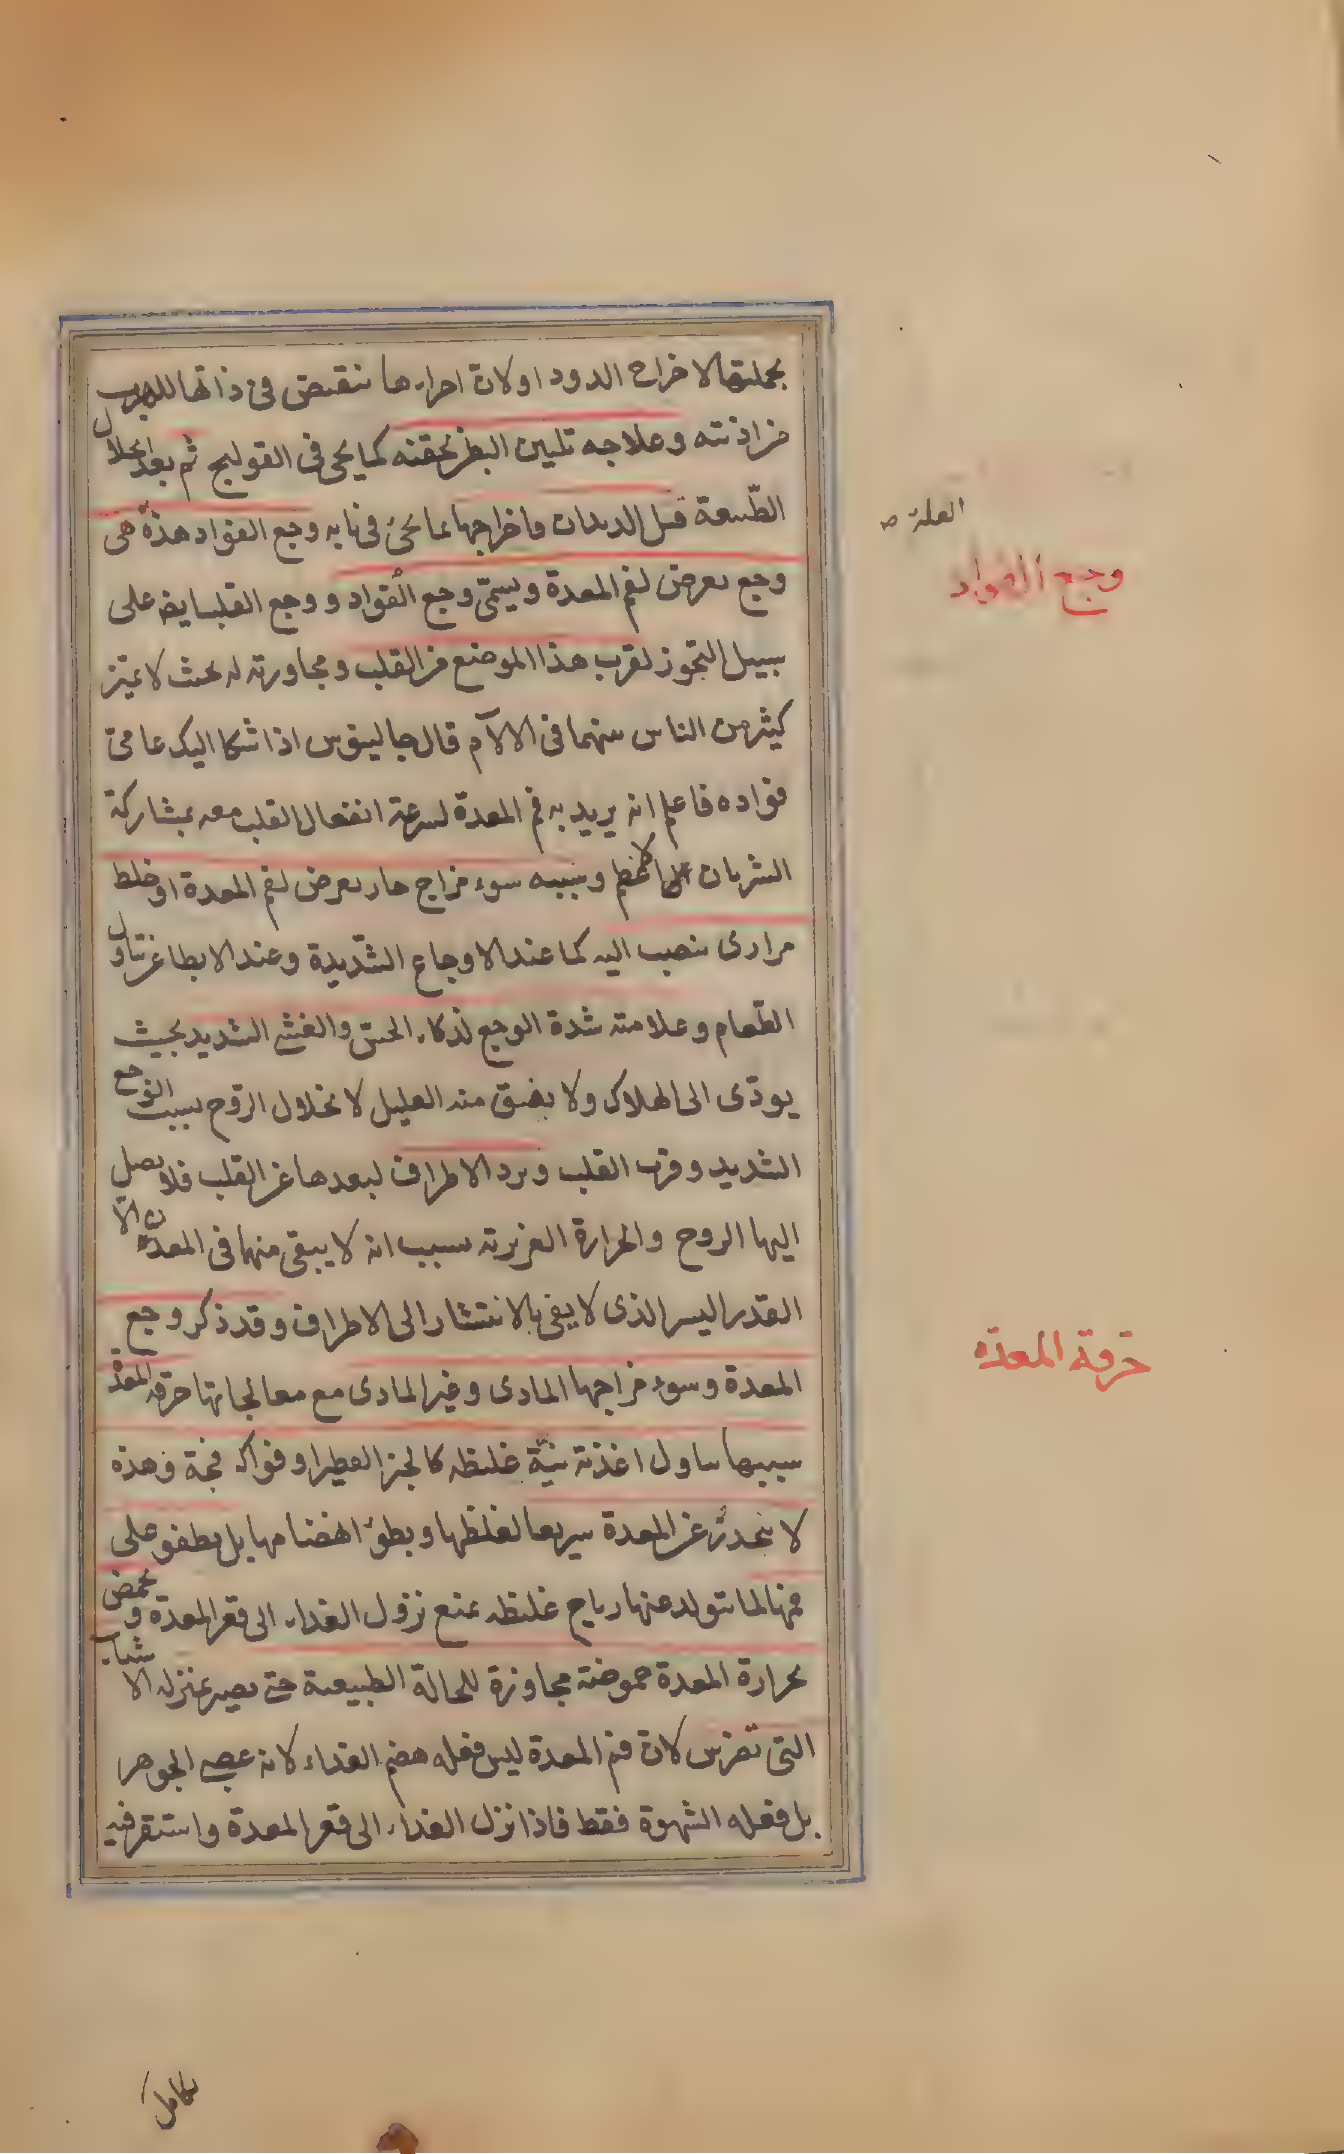 بجملتها لاخراج الدود او لان اجزاءها تنقبض فى ذاتها للهرب
من اذيته وعلاجه تليين البطن بحقنه كما يجئ فى القولنج ثم بعد انحلال
الطبيعة قتل الديدان واخراجها بما يجئ فى بابه وجع الفواد هذه هى
العلة صح
وجع الفواد
وجع يعرض لفم المعدة ويسمى وجع الفواد ووجع القلب ايضا على
سبيل التجوز لقرب هذا الموضع من القلب ومجاورته له بحيث لا يميز
كثير من الناس بينهما فى الالآم قال جالينوس اذا شكا اليك عامى
فواده فاعلم انه يريد به فم المعدة لسرعة انفعال القلب معه بمشاركة
الشريان الاعظم وسببه سوء مزاج حار يعرض لفم المعدة او خلط
مرارى ينصب اليه كما عند الاوجاع الشديدة وعند الابطا عن تناول
الطعام وعلامته شدة الوجع لذكاء الحس والغشى الشديد بحيث
يودى الى الهلاك ولا يفيق منه العليل لانحلال الروح بسبب الوجع
الشديد وقرب القلب وبرد الاطراف لبعدها عن القلب فلا يصل
اليها الروح والحرارة الغريزية بسبب انه لا يبقى منهما فى المعدن الا
القدر اليسير الذى لا يفى بالانتشار الى الاطراف وقد ذكر وجع
حرقة المعدة
المعدة وسوء مزاجها المادى وغير المادى مع معالجاتها حرقة المعدة
سببها تناول اغذية نيّة غليظه كالخبز الفطير او فواكه فجة وهذه
لا تنحدر عن المعدة سريعا لغلظها وبطؤ انهضامها بل يطفو على
فمها لما يتولد عنها رياح غليظه تمنع نزول الغداء الى قعر المعدة ويحمض
بحرارة المعدة حموضة مجاوزة للحالة الطبيعية حتى يصير بمنزله الاشياء
التى تضرس لان فم المعدة ليس فعله هضم الغداء لانه عصبى الجوهر
بل فعله الشهوة فقط فاذا نزل الغداء الى قعر المعدة واستقر فيه
يكامل